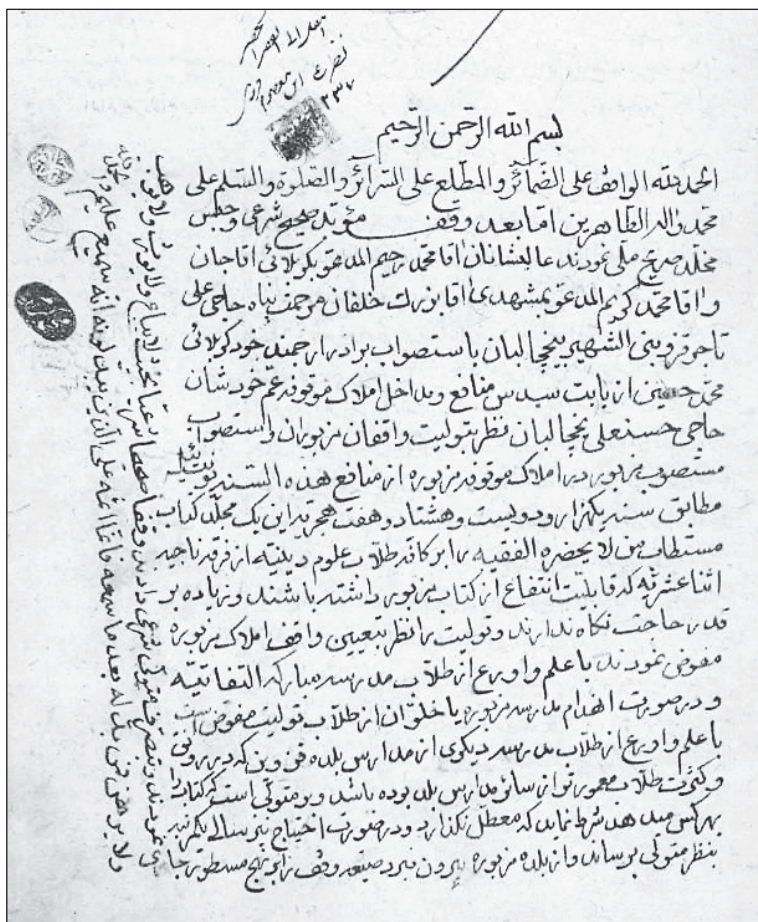 بسم الله الرحمن الرحیم
الحمد لله الواقف علی الضمائر و المطلع علی السرائر و الصلوة و السلم علی
محمد و اله الطاهرین اما بعد وقف مؤبد صحیح شرعی و حبس
مخلد صریح ملی نمودند عالیشانان اقا محمد رحیم المدعو بکربلائی اقاجان
و اقا محمد کریم المدعو بمشهدی اقا بزرک خلفان مرحمت پناه حاجی علی
تاجر قزوینی الشهیر بیخچالیان باستصواب برادر ارجمند خود کربلائی
محمد حسین از بابت سدس منافع و مداخل املاک موقوفه عم خودشان
حاجی حسنعلی یخچالیان نظر بتولیت واقفان مزبوران و استصواب
مستصوب مزبور در املاک موقوفه مزبوره از منافع هذه السنه
مطابق سنه یکهزار و دویست و هشتاد و هفت هجریه این یک مجلد کتاب
مستطاب من لا یحضره الفقیه را بر کافه طلاب علوم دینیه از فرقه ناجیه
اثنا عشریه که قابلیت انتفاع از کتاب مزبور داشته باشند و زیاده بر
قدر حاجت نکاه ندارند و تولیت را نظر بتعیین واقف املاک مزبوره
مفوض نمودند باعلم و اورع از طلاب مدرسه مبارکه التفاتیه
و در صورت انهدام مدرسه مزبوره یا خلو ان از طلاب تولیت مفوض است
باعلم و اورع از طلاب مدرسه دیکری از مدارس بلده قزوین که در رونق
و کثرت طلاب معمورتر از سائر مدارس بلد بوده باشد و بر متولی است که کتاب را
بهر کس میدهد شرط نماید که معطل نکذارد و در صورت احتیاج هر سال یکمرتبه
بنظر متولی برساند و از بلده مزبوره بیرون نبرد صیغه وقف را بر نهج مسطور جاری
نمودند و بتصرف متولی شرعی دادند وقفا صحیحا شرعیا بحیث لا یباع و لا یوهب و لا یورث
و لا یرهن فمن بدله بعد ما سمعه فانما اثمه علی الذین یبدلونه انه سمیع علیم